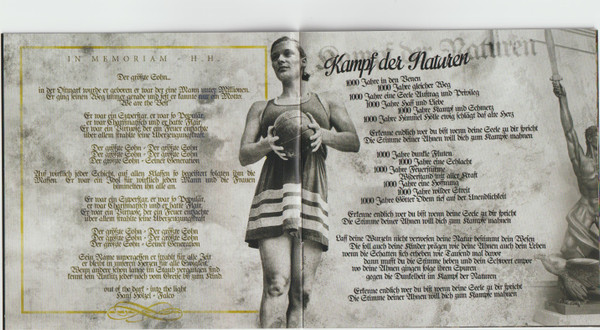 IN MEMORIAM - H.H.
Der größte Sohn...
in der Ostmark wurde er geboren er war der eine Mann unter Millionen.
Er ging seinen Weg immer gerade und fest er kannte nur ein Motto
"We are the Best"
Er war ein Superstar, er war so Populär,
er war Charismatisch und er hatte Flair
Er war ein Virtuose der ein Feuer entfachte
über allem strahlte eine Überzeugungskraft
Der größte Sohn - Der größte Sohn
Der größte Sohn - Der größte Sohn
Der größte Sohn - Seiner Generation
Auf wirklich jeder Schicht, auf allen Klassen so begeistert folgten ihm die
Massen. Er war ein Idol für wirklich jeden Mann und die Frauen
himmelten ihn alle an.
Er war ein Superstar, er war so Populär,
er war Charismatisch und er hatte Flair
Er war ein Virtuose der ein Feuer entfachte
über allem strahlte eine Überzeugungskraft
Der größte Sohn - Der größte Sohn
Der größte Sohn - Der größte Sohn
Der größte Sohn - Seiner Generation
Sein Name unvergessen er strahlt für alle Zeit
er bleibt in unseren Herzen für alle Ewigkeit
Wenn andere schon lange im Staub vergangen sind
kennt sein Antlitz jeder noch vom Greise bis zum Kind
out of the dark - into the light
Hans Hölzel - Falco
Kampf der Naturen
1000 Jahre in den Venen
1000 Jahre gleicher Weg
1000 Jahre eine Seele Auftrag und Privileg
1000 Jahre Haß und Liebe
1000 Jahre Kampf und Schmerz
1000 Jahre Himmel Hölle ewig schlägt das alte Herz
Erkenne endlich wer du bist wenn deine Seele zu dir spricht
Die Stimme deiner Ahnen will dich zum Kampfe mahnen
1000 Jahre dunkle Fluten
1000 Jahre eine Schlacht
1000 Jahre Feuerstürme
Widerstand mit aller Kraft
1000 Jahre eine Hoffnung
1000 Jahre wilder Streit
1000 Jahre Götter Odem tief aus der Unendlichkeit
Erkenne endlich wer du bist wenn deine Seele zu dir spricht
Die Stimme deiner Ahnen will dich zum Kampfe mahnen
Laß deine Wurzeln nicht verwesen deine Natur bestimmt dein Wesen
Die soll auch deine Kinder prägen wie deine Ahnen auch dein Leben
wenn die Schatten sich erheben wie Tausend mal zuvor
dann mußt du die Stimme heben und dein Schwert empor
wo deine Ahnen gingen folge ihren Spuren
gegen die Dunkelheit im Kampf der Naturen
Erkenne endlich wer du bist wenn deine Seele zu dir spricht
Die Stimme deiner Ahnen will dich zum Kampfe mahnen